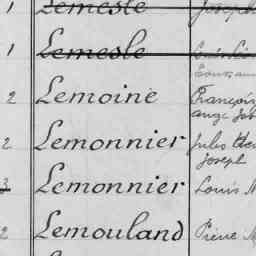 1 Lemesle Joseph
1 Lemesle
2 Lemoine François
ange
2 Lemonnier Jules
Joseph
3 Lemonnier Louis
2 Lemouland Pierre M